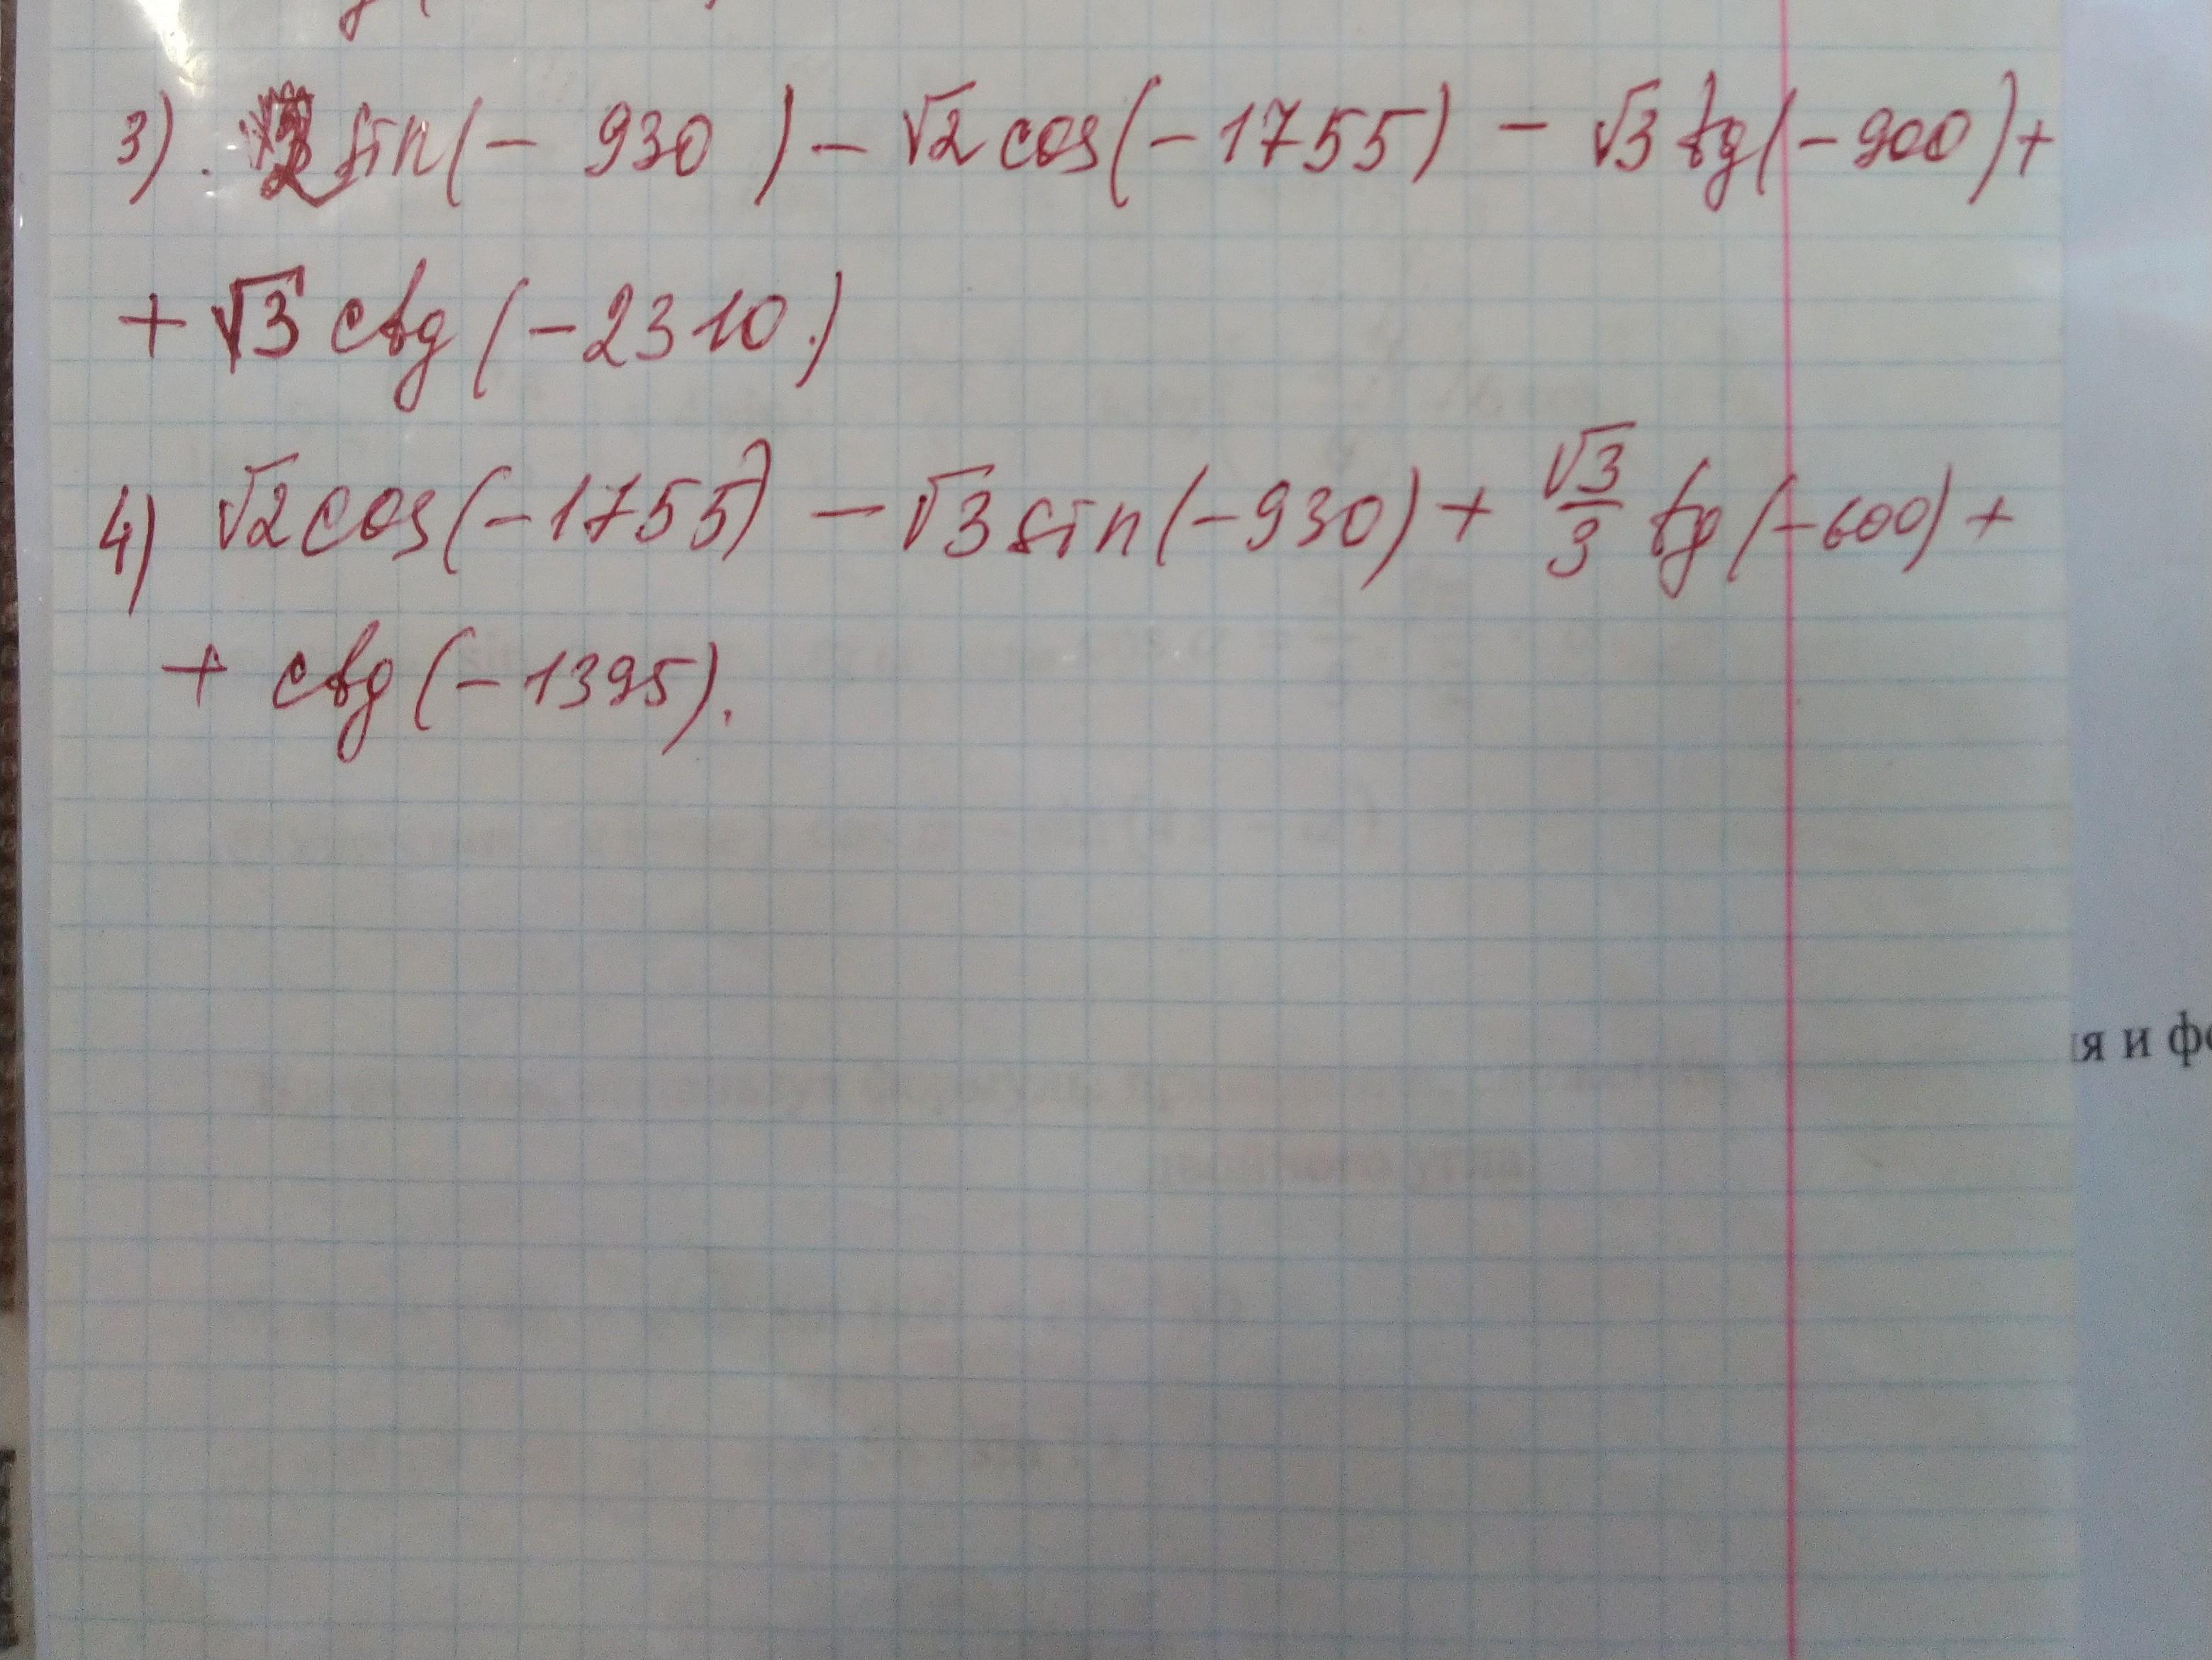 3). 2 sin(- 930 ) - √2 cos(-1755) - √3 tg(-900)+
+ √3 ctg(-2310.)
4) √2 cos(-1755) - √3 sin(-930) + √3/3 tg(-600) +
+ ctg(-1395).
я и фо